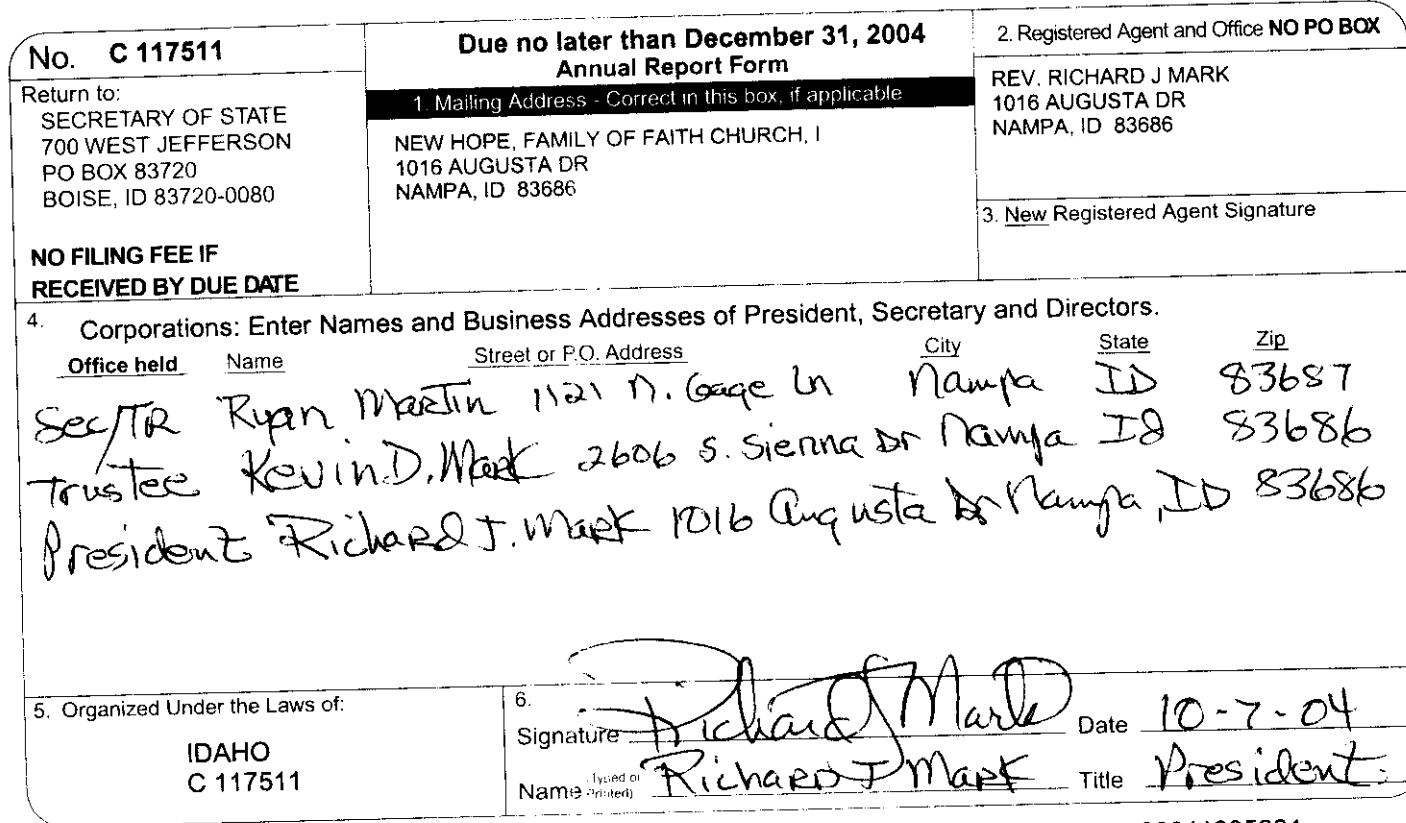 No. C 117511
Return to:
SECRETARY OF STATE
700 WEST JEFFERSON
PO BOX 83720
BOISE, ID 83720-0080
NO FILING FEE IF
RECEIVED BY DUE DATE
Due no later than December 31, 2004
Annual Report Form
1. Mailing Address - Correct in this box, if applicable
NEW HOPE, FAMILY OF FAITH CHURCH, I
1016 AUGUSTA DR
NAMPA, ID 83686
2. Registered Agent and Office NO PO BOX
REV. RICHARD J MARK
1016 AUGUSTA DR
NAMPA, ID 83686
3. New Registered Agent Signature
4. Corporations: Enter Names and Business Addresses of President, Secretary and Directors.
Office held Name Street or P.O. Address City State Zip
Sec/TR Ryan Martin 1121 N. Gage Ln Nampa ID 83687
Trustee Kevin D. Mark 2606 S. Sienna Dr Nampa Id 83686
President Richard J. Mark 1016 Augusta Dr Nampa, ID 83686
5. Organized Under the Laws of:
IDAHO
C 117511
6.
Signature Richard J Mark Date 10-7-04
Name (Typed or Printed) Richard J Mark Title President